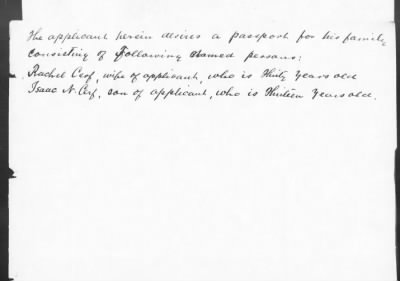 The applicant herein desires a passport for his family
consisting of Following Named persons:
Rachel Cerf, wife of applicant, who is thirty years old
Isaac N. Cerf, son of applicant, who is thirteen years old.